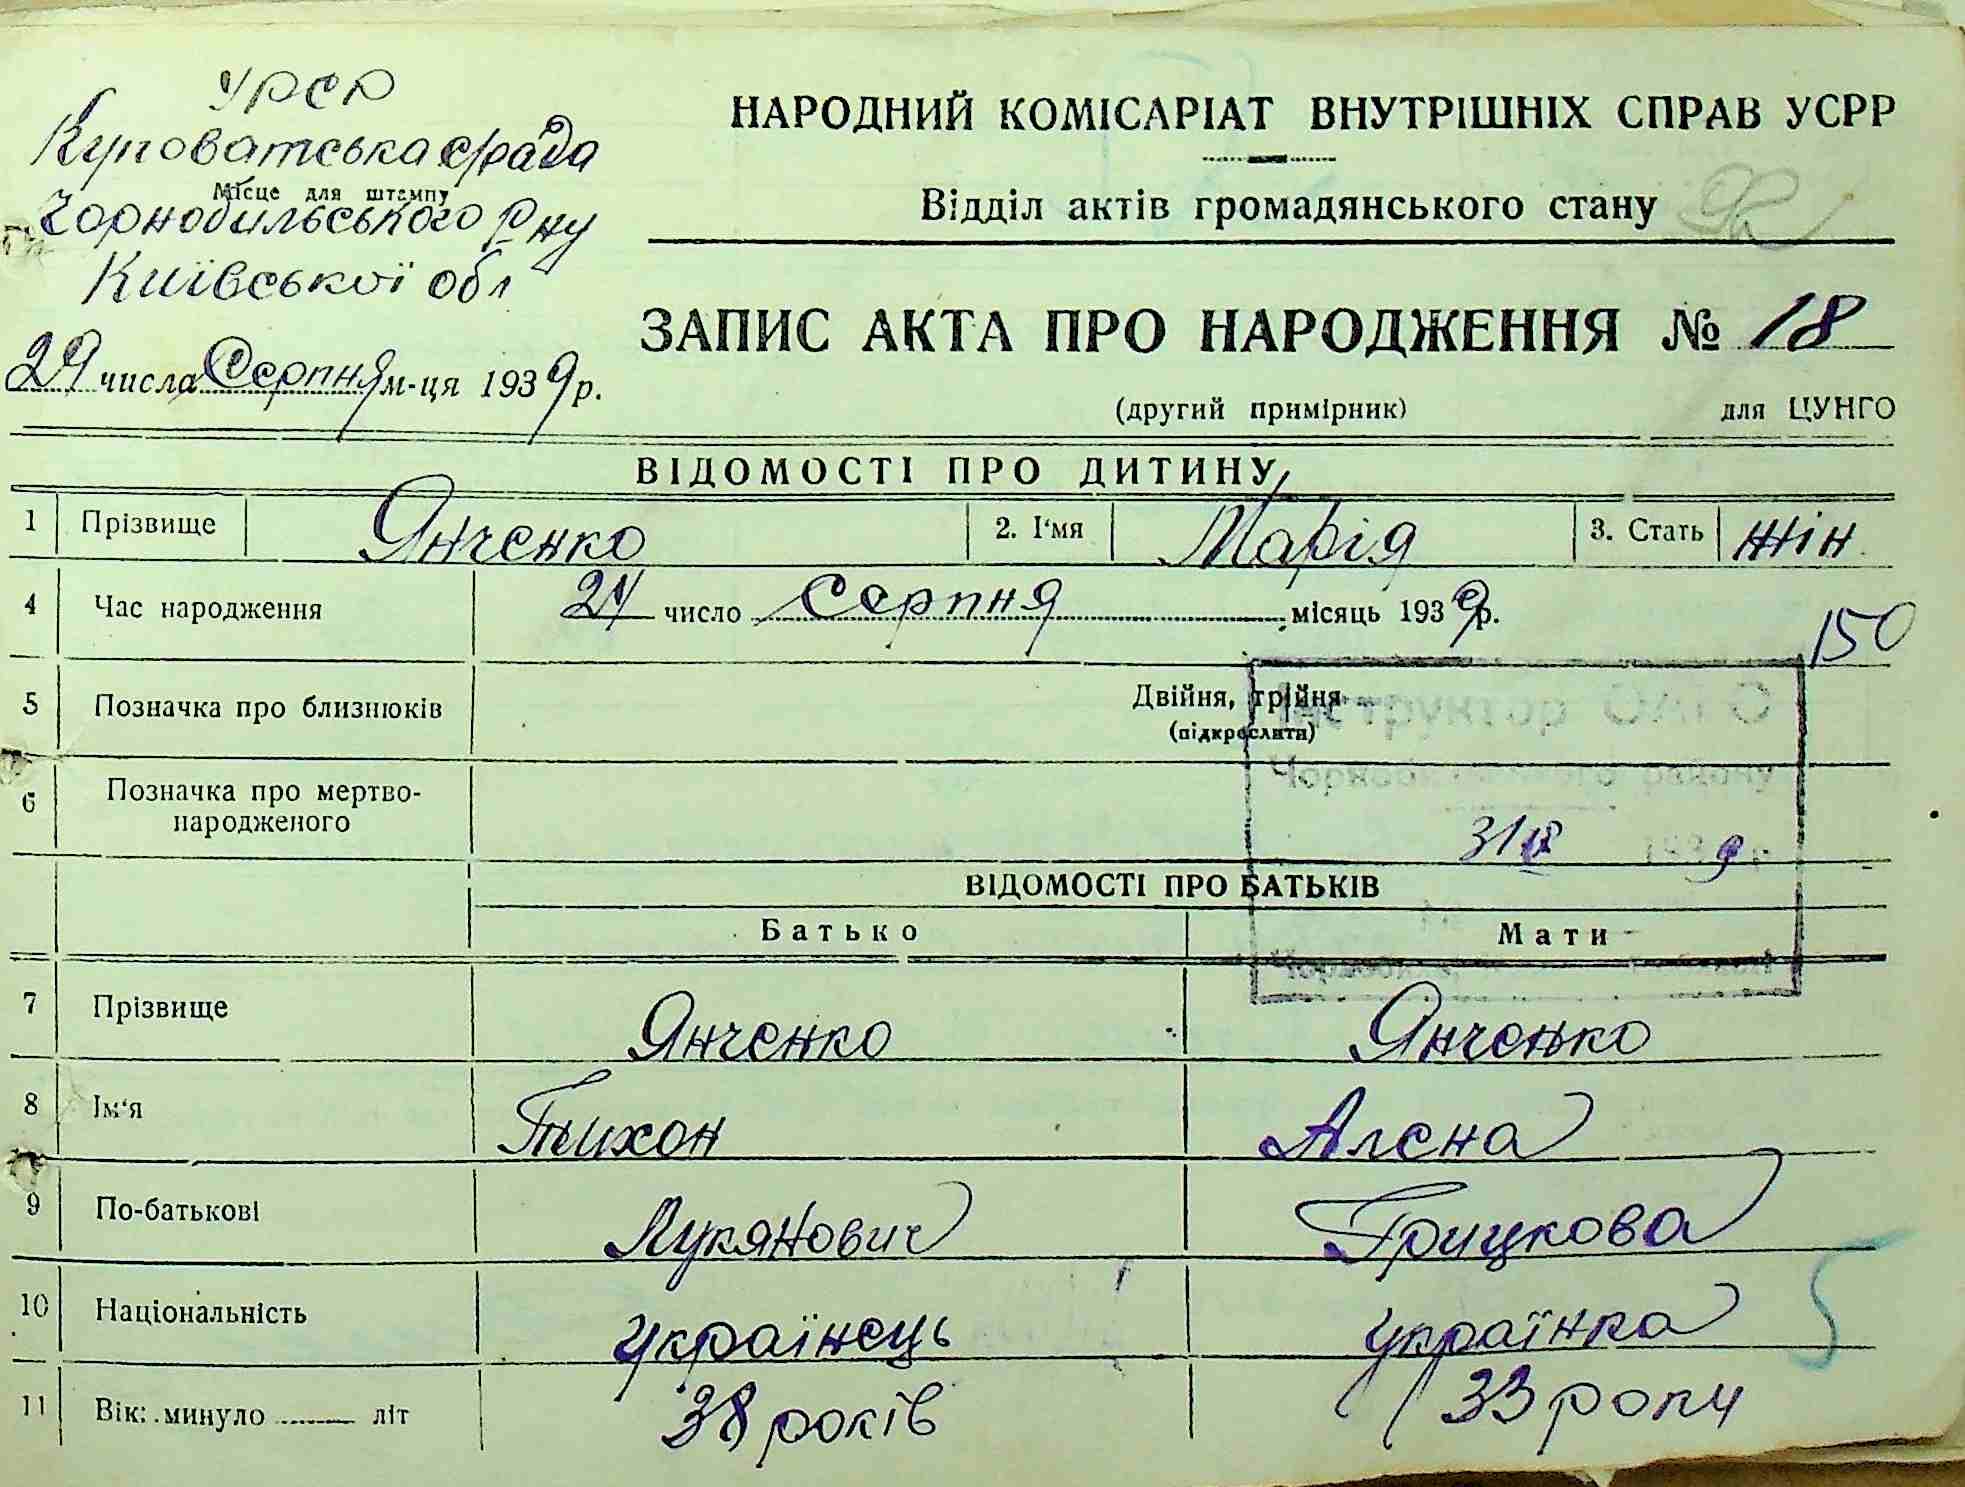 УРСР
Куповатська с/рада
Місце для штампу
Чорнобильського р-ну
Київської обл
29 числа Серпня м-ця 1939 р.
НАРОДНИЙ КОМІСАРІАТ ВНУТРІШНІХ СПРАВ УСРР
Відділ актів громадянського стану
ЗАПИС АКТА ПРО НАРОДЖЕННЯ № 18
(другий примірник) для ЦУНГО
ВІДОМОСТІ ПРО ДИТИНУ
1 Прізвище Янченко 2. І'мя Марія 3. Стать жін.
4 Час народження число Серпня місяць 1939 р.
150
5 Позначка про близнюків Двійня, трійня
(підкреслити)
Інструктор ОАГС
Чорнобильського району
6 Позначка про мертво-
народженого
31 1939 р
ВІДОМОСТІ ПРО БАТЬКІВ
Батько Мати
7 Прізвище Янченко Янченко
8 Ім'я Тихон Алєна
9 По-батькові Лукянович Грицкова
10 Національність українець українка
5
11 Вік: минуло літ 38 років 33 роки